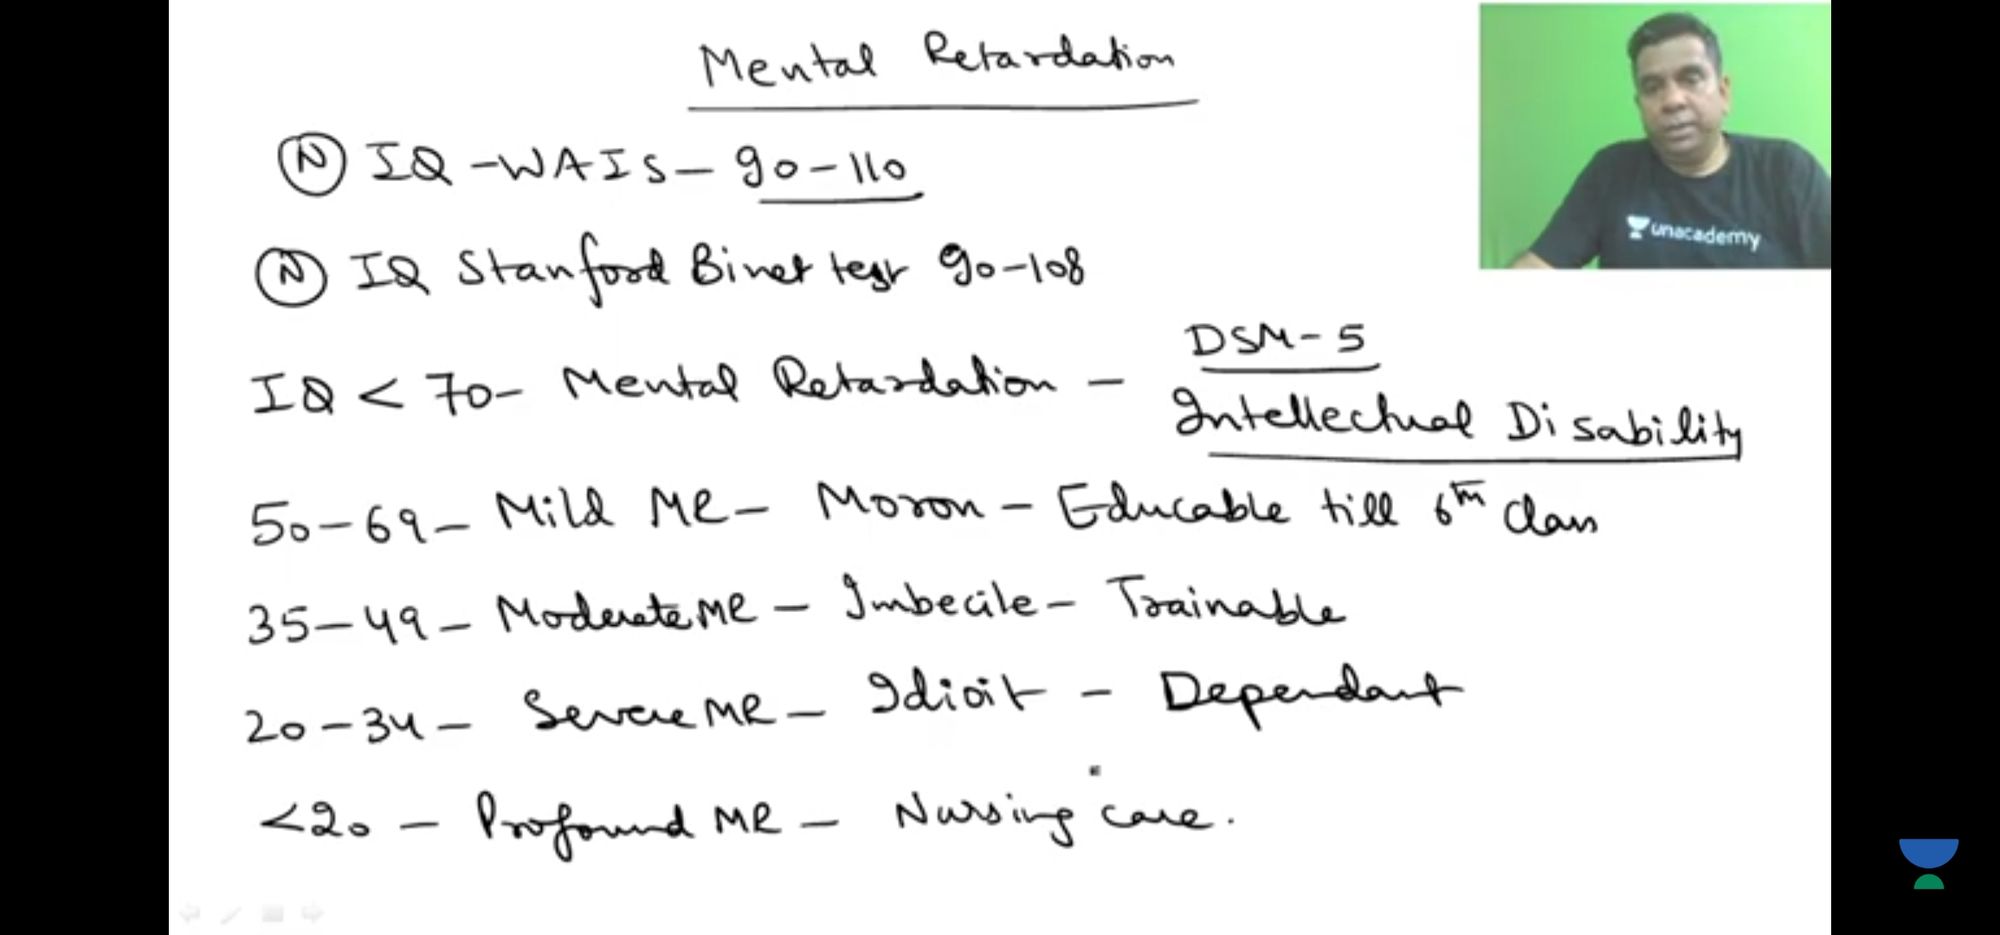 Mental Retardation
N IQ - WAIS - 90-110
N IQ Stanford Binet test 90-108
DSM-5
IQ < 70 - Mental Retardation - Intellectual Disability
50-69 - Mild MR - Moron - Educable till 6th Class
35-49 - Moderate MR - Imbecile - Trainable
20-34 - Severe MR - Idioit - Dependant
<20 - Profound MR - Nursing care.
unacademy